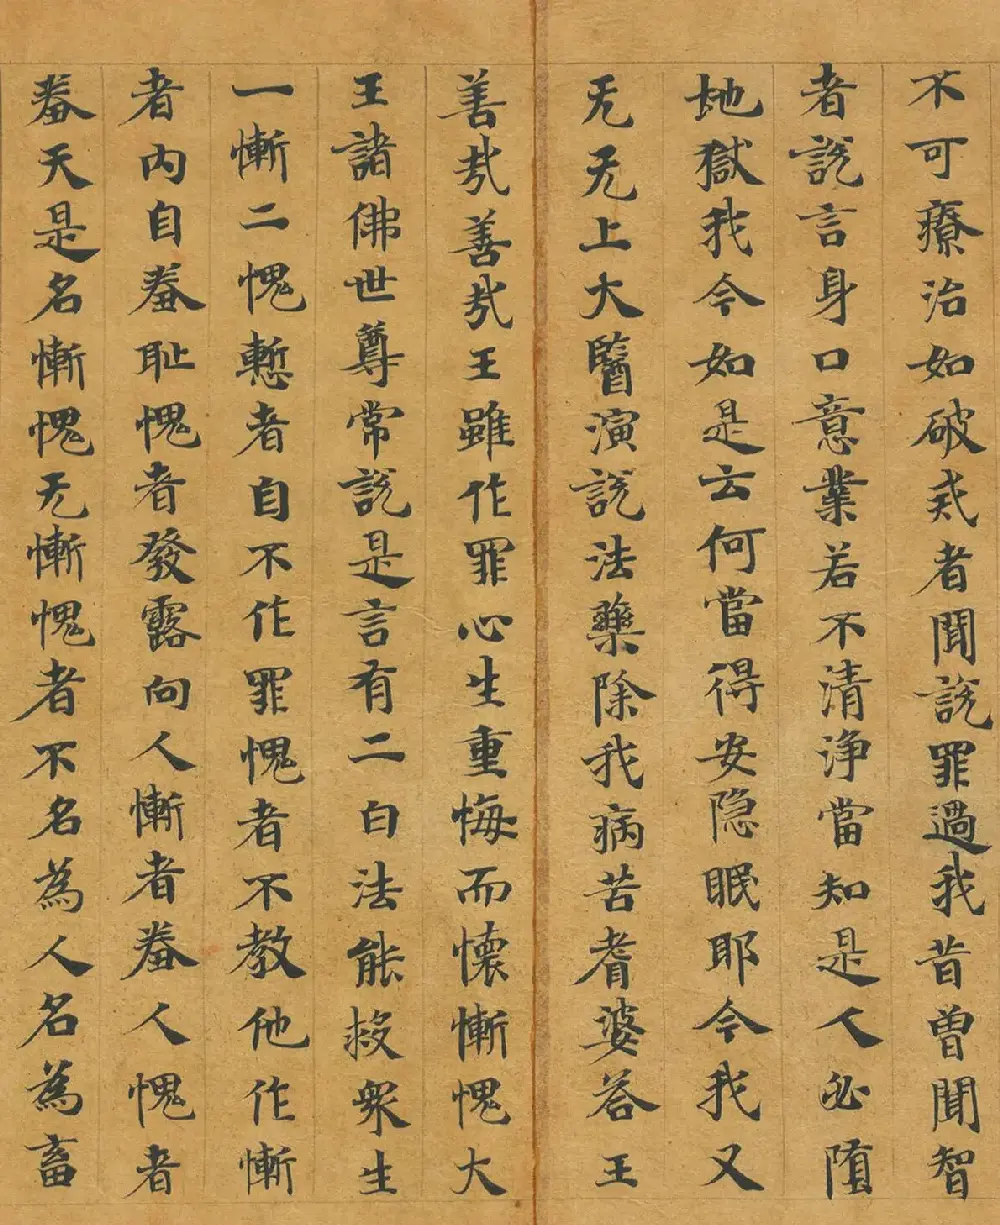 不可療治如破戒者聞說罪過我昔曾聞智
者說言身口意業若不清淨當知是人必墮
地獄我今如是云何當得安隱眠耶今我又
无无上大醫演說法藥除我病苦耆婆答王
善哉善哉王雖作罪心生重悔而懷慚愧大
王諸佛世尊常說是言有二白法能救眾生
一慚二愧慙者自不作罪愧者不教他作慚
者內自羞恥愧者發露向人慚者羞人愧者
羞天是名慚愧无慚愧者不名為人名為畜